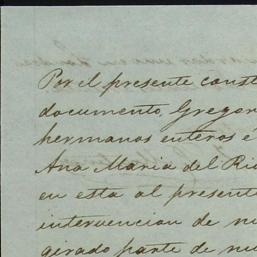 Por el presente const
documento, Gregor
hermanos enteros é
Ana Maria del Ri
en esta al present
intervencion de nu
girado parte de nu